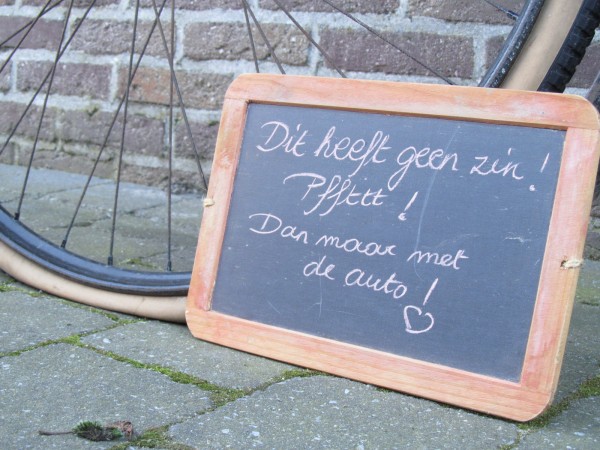 Dit heeft geen zin!
Pfffttt!
Dan maar met
de auto!